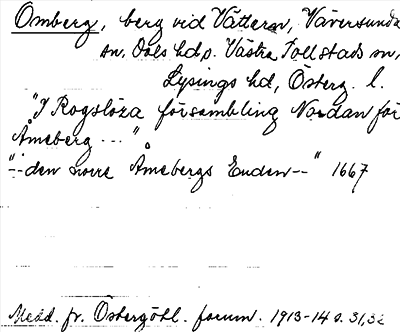 Omberg, berg vid Vättern, Väversunda
sn, Dals hd, o. Västra Tollstads sn,
Lysings hd, Österg. l.
"I Rogslöza försambling Nordan för
Åmeberg ..."
"-- den norre Åmebergs Enden --" 1667
Medd. fr. Östergötl. fornm. 1913-14 s. 31,32